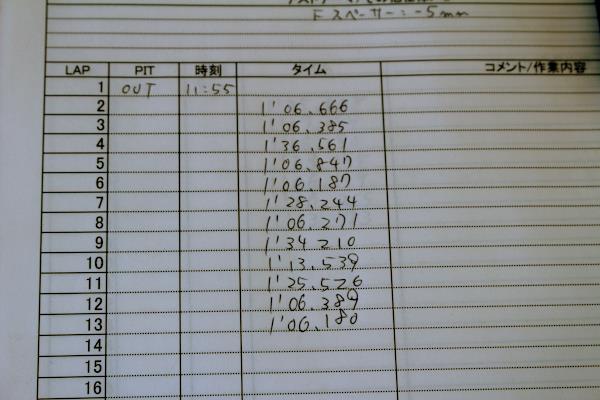 Fスペーサー:-5mm
LAP PIT 時刻 タイム コメント/作業内容
1 OUT 11:55
2 1'06.666
3 1'06.385
4 1'36.561
5 1'06.847
6 1'06.187
7 1'28.244
8 1'06.271
9 1'34 210
10 1'13.539
11 1'25.526
12 1'06.389
13 1'06.180
14
15
16